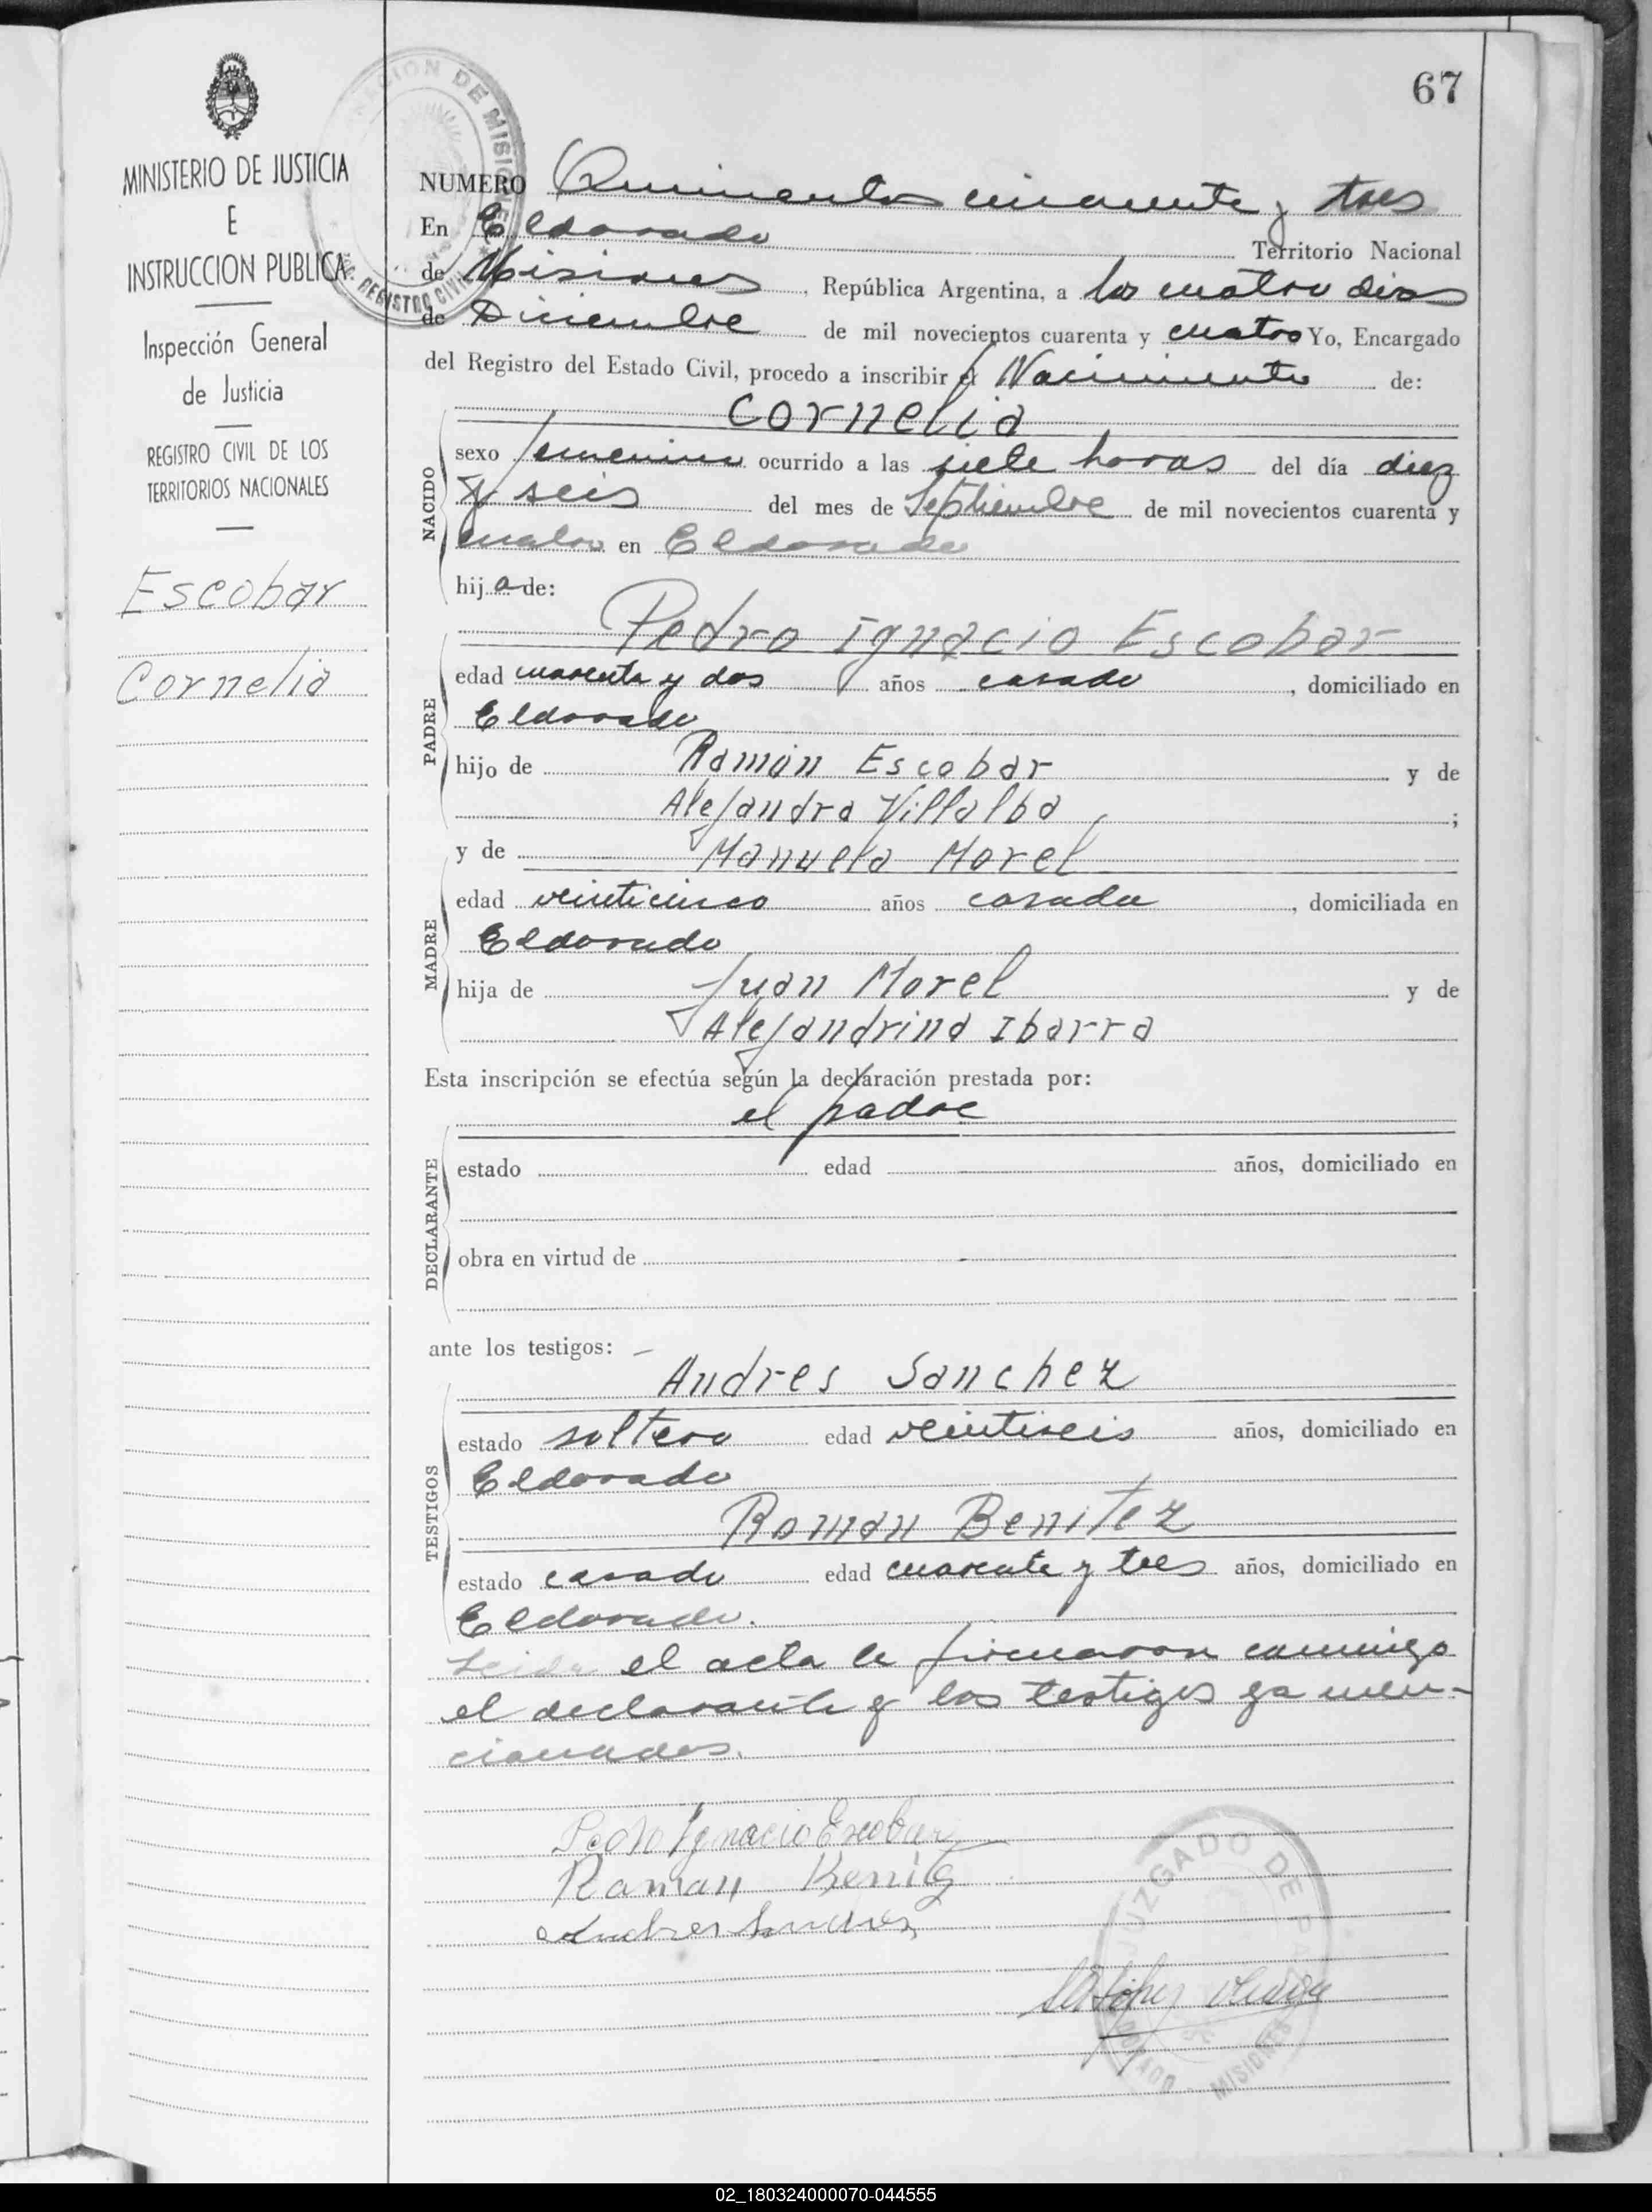 67
MINISTERIO DE JUSTICIA
E
INSTRUCCION PUBLICA
Inspección General
de Justicia
REGISTRO CIVIL DE LOS
TERRITORIOS NACIONALES
Escobar
Cornelia
DE MISIONES
REGISTRO CIVIL
NUMERO Quinientos cincuenta y tres
En Eldorado Territorio Nacional
de Misiones, República Argentina, a los cuatro dias
de Diciembre de mil novecientos cuarenta y cuatro Yo, Encargado
del Registro del Estado Civil, procedo a inscribir el Nacimiento de:
Cornelia
NACIDO
sexo femenino ocurrido a las siete horas del día diez
y seis del mes de Septiembre de mil novecientos cuarenta y
cuatro en Eldorado
hija de:
Pedro Ignacio Escobar
PADRE
edad cuarenta y dos años casado, domiciliado en
Eldorado
hijo de Ramón Escobar y de
Alejandra Villalba ;
y de Manuela Morel
MADRE
edad veinticinco años casada, domiciliada en
Eldorado
hija de Juan Morel y de
Alejandrina Ibarra
Esta inscripción se efectúa según la declaración prestada por:
el padre
DECLARANTE
estado edad años, domiciliado en
obra en virtud de
ante los testigos: –
Andres Sanchez
TESTIGOS
estado soltero edad veintiseis años, domiciliado en
Eldorado
Roman Benitez
estado casado edad cuarenta y tres años, domiciliado en
Eldorado.
Leida el acta la firmaron conmigo
el declarante y los testigos ya men-
cionados.
Pedro Ignacio Escobar
Raman Benitz
Andres Sanches
JUZGADO DE PAZ
ELDORADO MISIONES
02_180324000070-044555